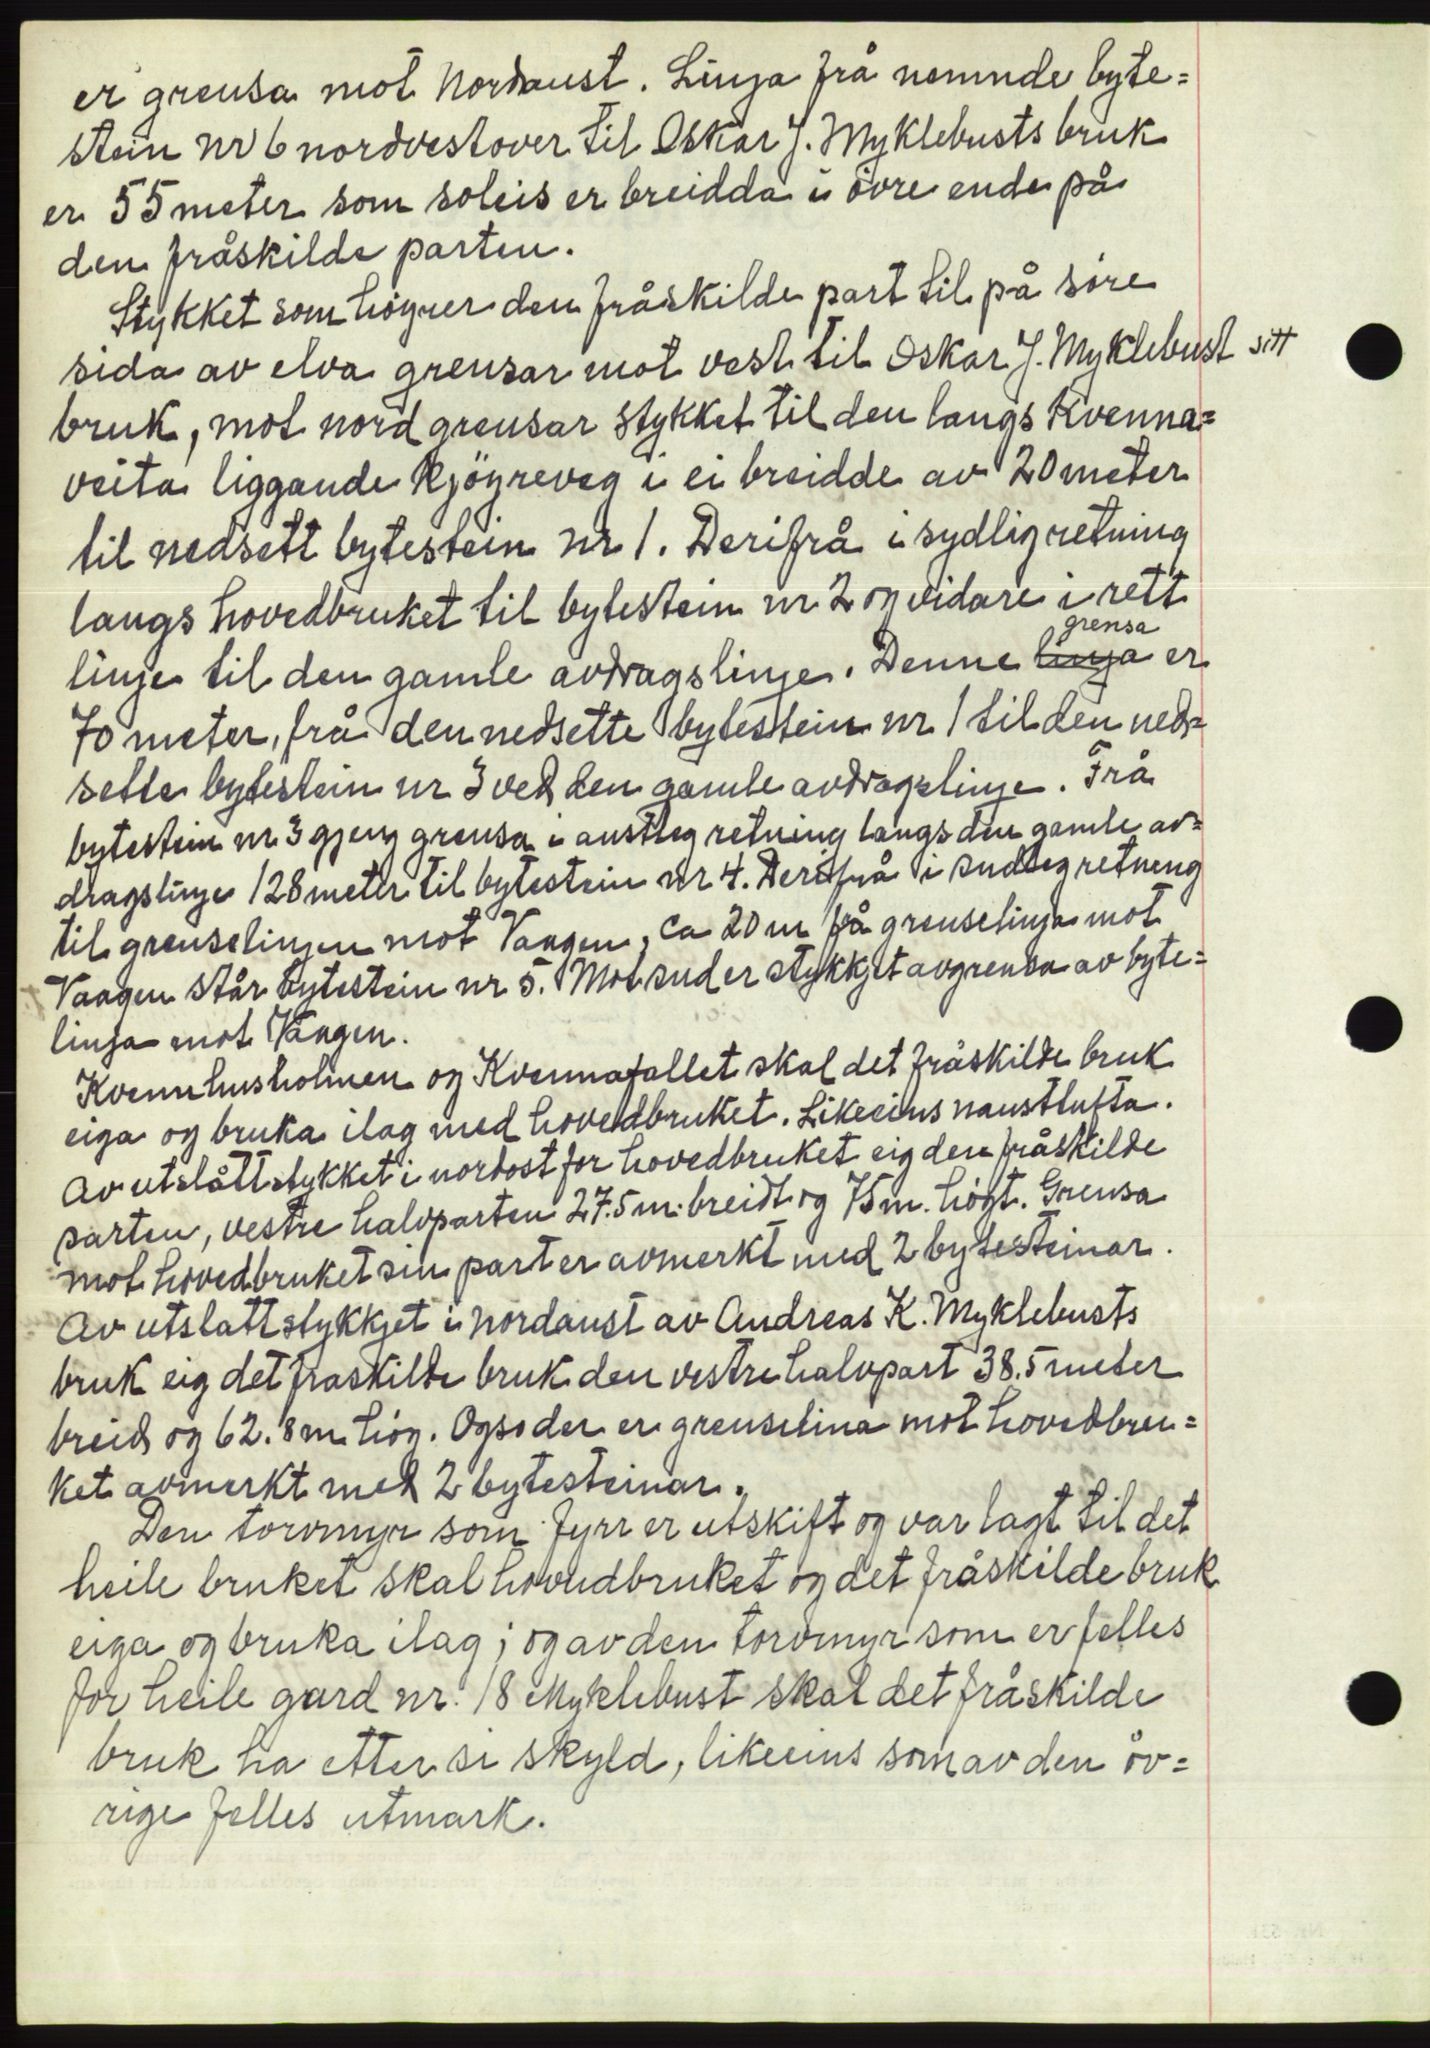 er grensa mot Nordaust. Linja frå nemnde byte=
stein nr 6 nordvestover til Oskar J. Myklebusts bruk
er 55 meter som soleis er breidda i övre ende på
den fråskilde parten.
Stykket som höyrer den fråskilde part til på söre
sida av elva grensar mot vest til Oskar J. Myklebust sitt
bruk, mot nord grensar stykket til den langs Kvenna=
veita liggande kjöyreveg i ei breidde av 20 meter
til nedsett bytestein nr 1. Derifrå i sydlig retning
langs hovedbruket til bytestein nr 2 og vidare i rett
linje til den gamle avdragslinje. Denne ~~linja~~ grensa er
70 meter, frå den nedsette bytestein nr 1 til den ned=
sette bytestein nr 3 ved den gamle avdragslinje. Frå
bytestein nr 3 gjeng grensa i austleg retning langs den gamle av=
dragslinje 128 meter til bytestein nr 4. Derifrå i sudleg retneng
til grenselinjen mot Vaagen, ca 20 m frå grenselinja mot
Vaagen står bytestein nr 5. Mot sud er stykkjet avgrensa av byte=
linja mot Vaagen.
Kvennhusholmen og Kvennafallet skal det fråskilde bruk
eiga og bruka ilag med hovedbruket. Likeeins naustlufta.
Av utslåttstykket i nordost for hovedbruket eig den fråskilde
parten, vestre halvparten 27.5 m. breidt og 75 m. högt. Grensa
mot hovedbruket sin part er avmerkt med 2 bytesteinar.
Av utslattstykkjet i Nordaust av Andreas K. Myklebusts
bruk eig det fraskilde bruk den vestre halvpart 38.5 meter
breid og 62.8 m. hög. Ogso der er grenselina mot hovedbru=
ket avmerkt med 2 bytesteinar.
Den torvmyr som fyrr er utskift og var lagt til det
heile bruket skal hovudbruket og det fråskilde bruk
eiga og bruka ilag; og av den torvmyr som er felles
for heile gard nr. 18 Myklebust skal det fråskilde
bruk ha etter si skyld, likeeins som av den öv=
rige felles utmark.